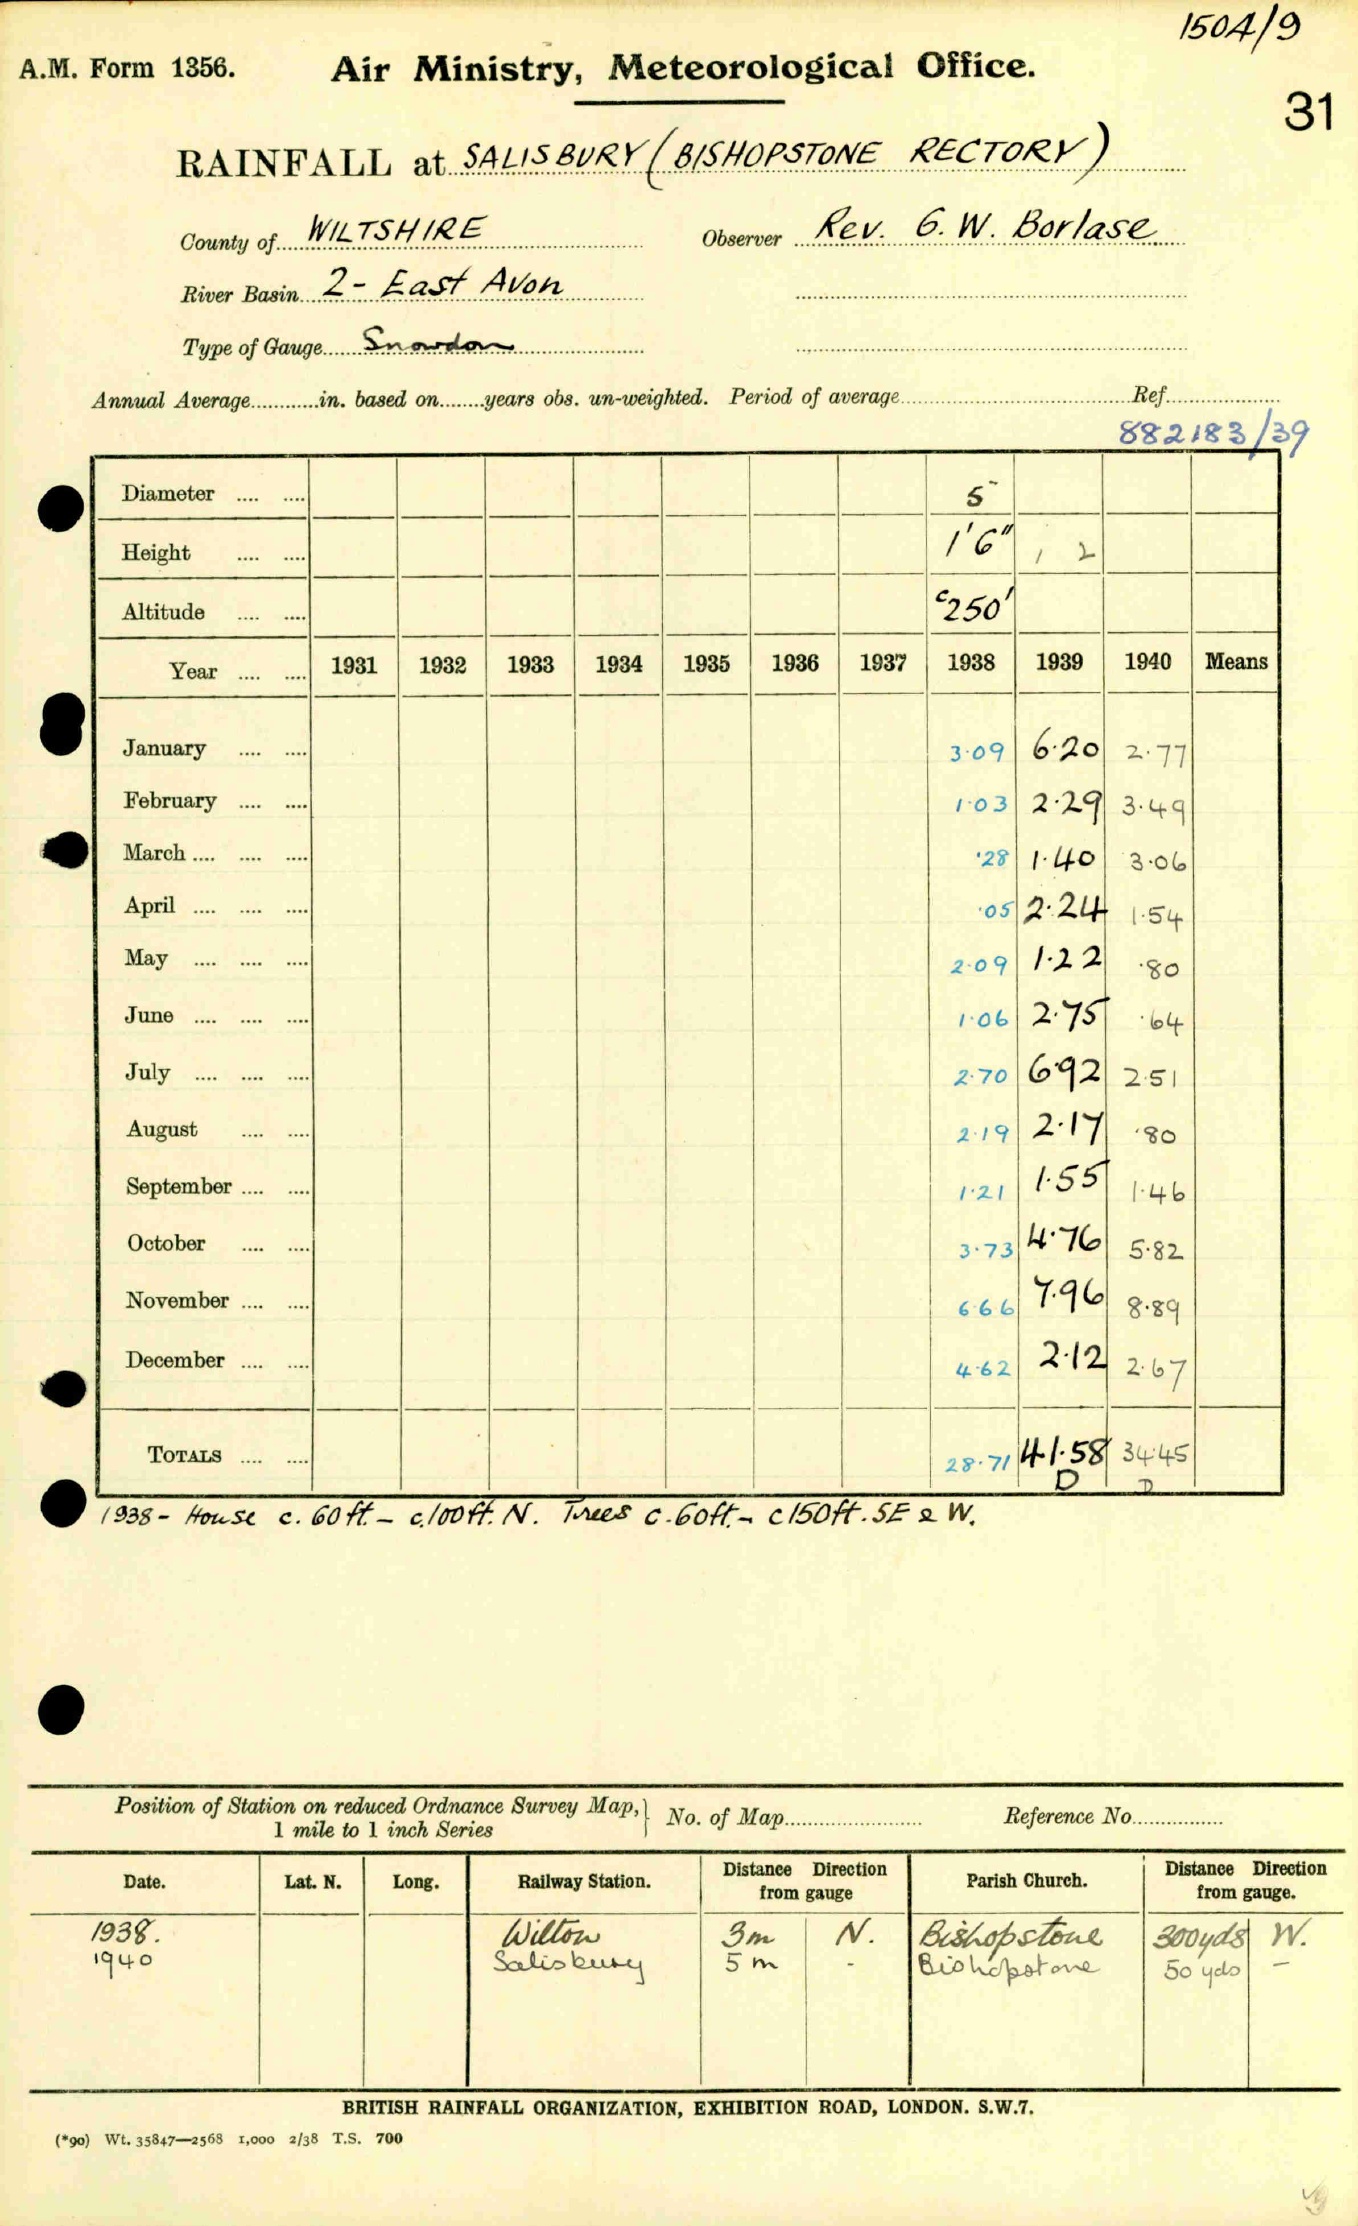 1504/9
A.M. Form 1356. Air Ministry, Meteorological Office.
31
RAINFALL at SALISBURY (BISHOPSTONE RECTORY)
County of WILTSHIRE Observer Rev. G. W. Borlase
River Basin 2 - East Avon
Type of Gauge Snowdon
Annual Average............in. based on........years obs. un-weighted. Period of average............Ref............
882183/39
Diameter .... .... 5
Height .... .... 1'6" 1 2
Altitude .... .... c250'
Year .... .... 1931 1932 1933 1934 1935 1936 1937 1938 1939 1940 Means
January .... .... 3.09 6.20 2.77
February .... .... 1.03 2.29 3.49
March .... .... .... .28 1.40 3.06
April .... .... .... .05 2.24 1.54
May .... .... .... 2.09 1.22 .80
June .... .... .... 1.06 2.75 .64
July .... .... .... 2.70 6.92 2.51
August .... .... 2.19 2.17 .80
September .... .... 1.21 1.55 1.46
October .... .... 3.73 4.76 5.82
November .... .... 6.66 7.96 8.89
December .... .... 4.62 2.12 2.67
TOTALS .... .... 28.71 41.58 34.45
D D
1938 - House c. 60ft. - c.100ft. N. Trees c. 60ft. - c150ft. SE & W.
Position of Station on reduced Ordnance Survey Map, 1 mile to 1 inch Series } No. of Map............ Reference No............
Date. Lat. N. Long. Railway Station. Distance Direction from gauge Parish Church. Distance Direction from gauge.
1938. Wilton 3m N. Bishopstone 300yds W.
1940 Salisbury 5 m - Bishopstone 50 yds -
BRITISH RAINFALL ORGANIZATION, EXHIBITION ROAD, LONDON. S.W.7.
(*90) Wt. 35847—2568 1,000 2/38 T.S. 700